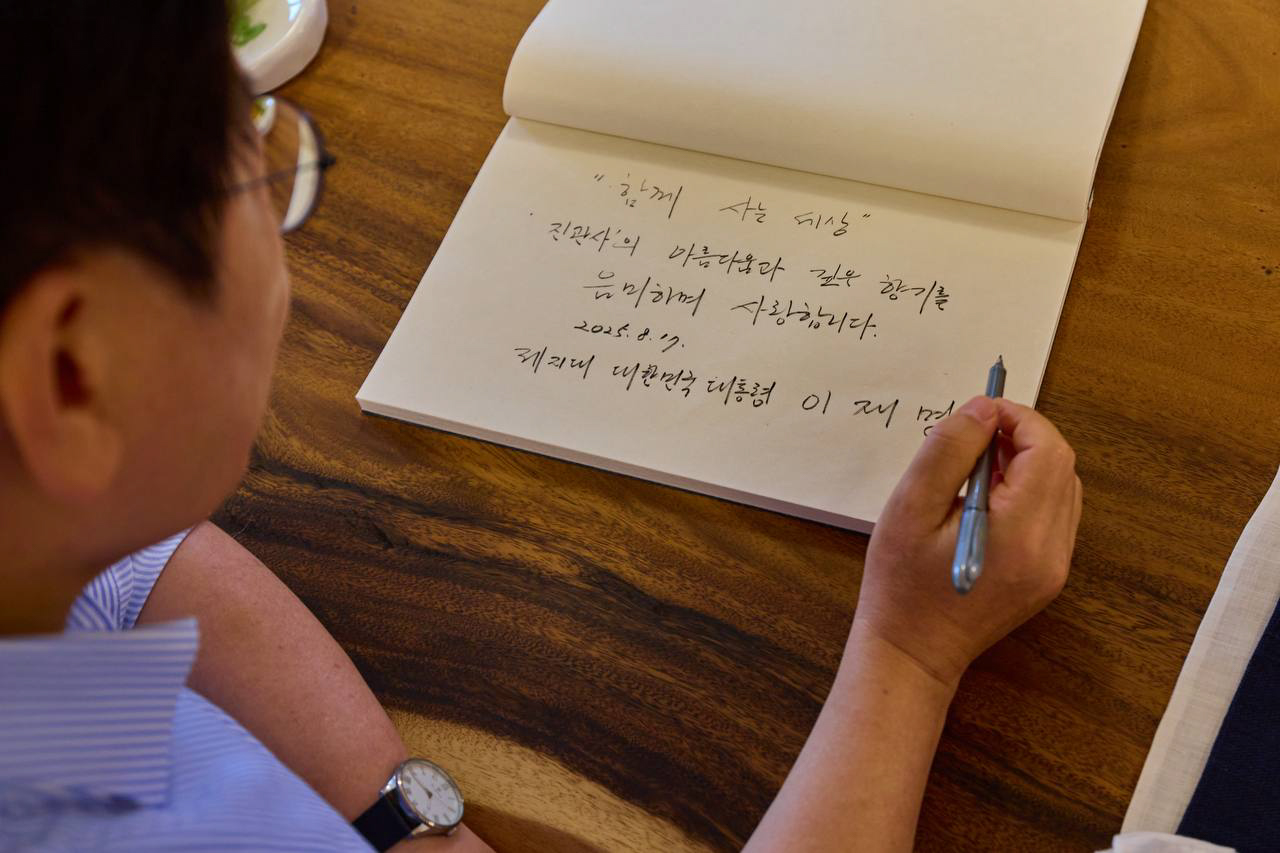 "함께 사는 세상"
진관사의 아름다움과 깊은 향기를
음미하며 사랑합니다.
2025. 8. 17.
대한민국 대통령 이 재 명